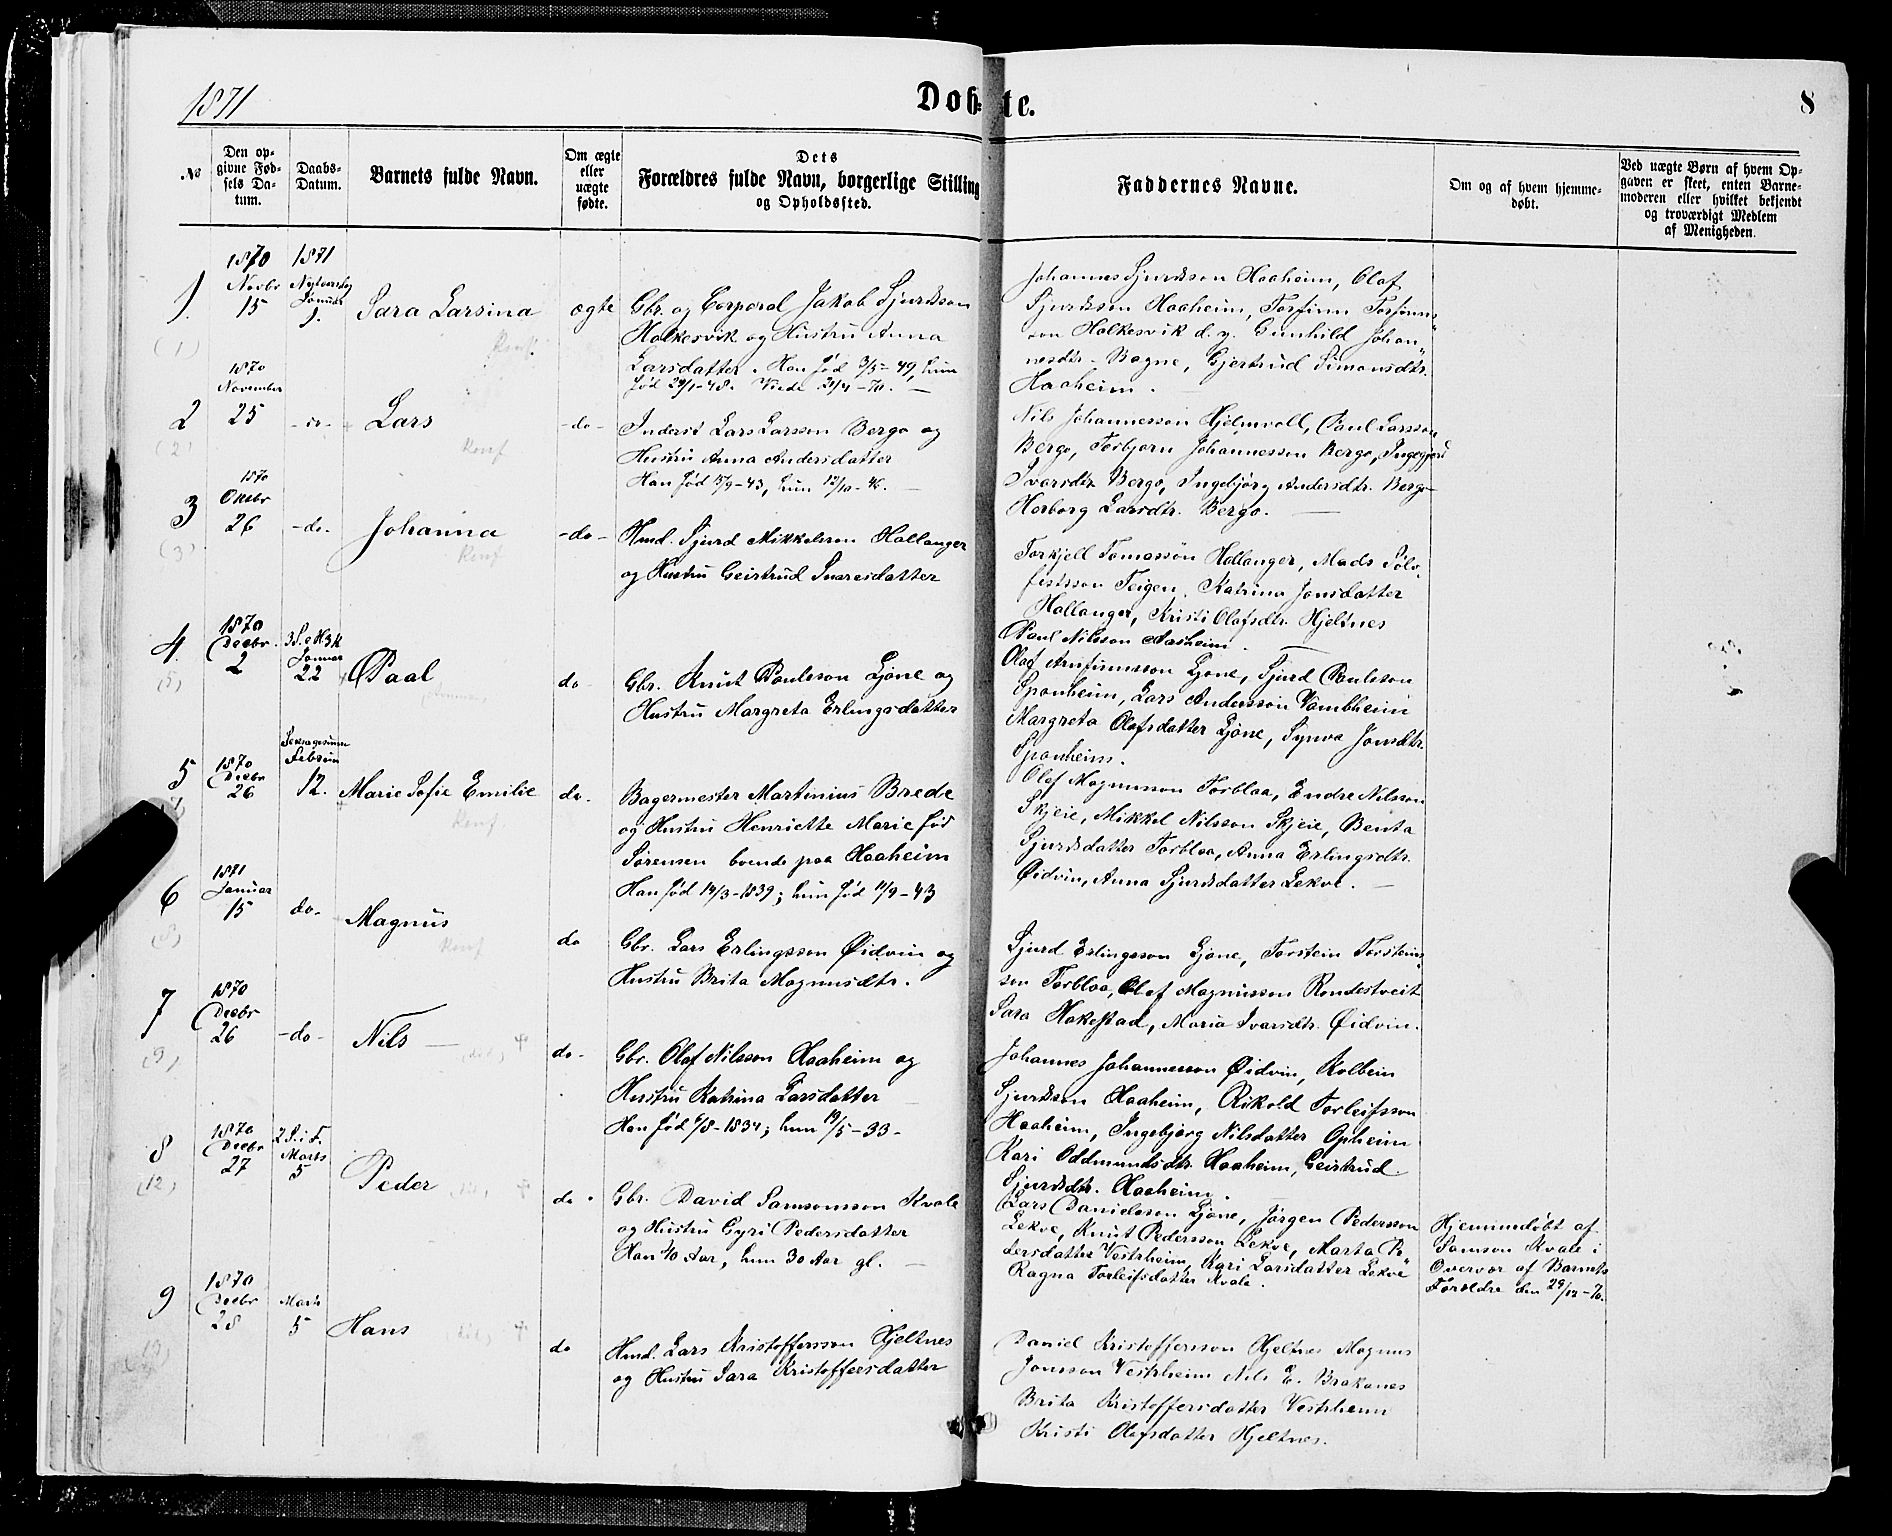 1871
Døbte.
8
No
Den opgivne Fødsels Datum.
Daabs-Datum.
Barnets fulde Navn.
Om ægte eller uægte fødte.
Dets Forældres fulde Navn, borgerlige Stilling og Opholdssted.
Faddernes Navne.
Om og af hvem hjemmedøbt.
Ved uægte Børn af hvem Opgaven er skeet, enten Barnemoderen eller hvilket bekjendt og troværdigt Medlem af Menigheden.
1.
(1)
1870
Novbr
15
1871
Nytaarsdag
Januar
1.
Sara Larsina
Konf.
ægte
Gbr. og Corporal Jakob Sjurdsson
Halkesvik og Hustru Anna
Larsdatter. Han fød 3/5-49, hun
fød 29/1-48. Viede 21/4-70.
Johannes Sjurdsson Haaheim, Olaf
Sjurdsson Haaheim, Torfinn Torfinns
son Halkesvik d. y. Gunhild Johan
nesdtr. Bagne, Gjertrud Simonsdtr.
Haaheim.
2
(2)
1870
November
25
Lars
Konf
-do-
Inderst Lars Larsson Bergo og
Hustru Anna Andersdatter
Nils Johannesson Hjelmvoll, Paul Larsson
Bergo, Torbjørn Johannesson Bergo, Ingegjerd
Ivarsdtr Bergo, Ingebjørg Andersdtr. Bergo
Herborg Larsdtr. Bergo.
3
(3)
1870
Oktbr
26
-do-
Johanna
Konf
-do-
Hmd. Sjurd Mikkelsson Hallanger
og Hustru Geirtrud Ivarsdatter
Torkjell Tomasson Hallanger, Mads Sølv
festsson Teigen. Katrina Jonsdatter
Hallanger, Kristi Olafsdtr. Hjeltnes
Paul Nilsson Aasheim.
4
(5)
1870
Decbr.
2
3 S. e. H3K
Januar
22
Paal
do
Gbr. Knut Paulsson Ljone og
Hustru Margreta Erlingsdatter
Olaf Arnfinnsson Ljone, Sjurd Paulsson
Spanheim, Lars Andersson Vambheim
Margreta Olafsdatter Ljone, Synva Jonsdtr.
Spanheim.
5
1870
Decbr
26
Sexagesima
Februar
12.
Marie Sofie Emilie
Konf
do.
Bagermester Martinius Brede
og Hustru Henriette Marie fød
Sørensen boende paa Haaheim
Han fød 14/3-1839; hun fød 11/9-43
Olaf Magnusson Torblaa, Endre Nilsson
Skjeie, Mikkel Nilsson Skjeie, Benta
Sjurdsdatter Torblaa, Anna Erlingsdtr.
Øidvin, Anna Sjurdsdatter Lekve.
6
(8)
1871
Januar
15
do.
Magnus
Konf
do
Gbr. Lars Erlingsson Øidvin og
Hustru Brita Magnusdtr.
Sjurd Erlingsson Ljone, Torstein Torsteins
son Torblaa, Olaf Magnusson Rondestveit
Sara Hakestad, Maria Ivarsdtr. Øidvin.
7
(9)
1870
Decbr
26
-do-
Nils
(død) +
do-
Gbr. Olaf Nilsson Haaheim og
Hustru Katrina Larsdatter
Han fød 6/8-1834; hun 19/5-33-
Johannes Johannesson Øidvin, Kolbein
Sjurdsson Haaheim, Rikold Torleifsson
Haaheim, Ingebjørg Nilsdatter Opheim
Kari Oddmundsdtr. Haaheim, Geirtrud
Sjurdsdtr. Haaheim.
8
(12)
1870
Decbr
27
2 S. i F.
Marts
5
Peder
do.
Gbr. David Samsonsson Kvale
og Hustru Gyri Pedersdatter
Han 40 Aar, hun 30 Aar gl.
Lars Danielsson Ljone, Jørgen Pedersson
Lekve, Knut Pedersson Lekve, Marta Pe
dersdatter Vestrheim, Kari Larsdatter Lekve
Ragna Torleifsdatter Kvale.
Hjemmedøbt af
Samson Kvale i
Overvær af Barnets
Forældre den 29/12-70.
9
(13)
1870
Decbr
28
Marts
5
Hans
(død) +
do
Hmd. Lars Kristoffersson Hjeltnes
og Hustru Sara Kristoffersdatter
Daniel Kristoffersson Hjeltnes Magnus
Jonsson Vestrheim Nils E. Brakanes
Brita Kristoffersdatter Vestrheim
Kristi Olafsdatter Hjeltnes.